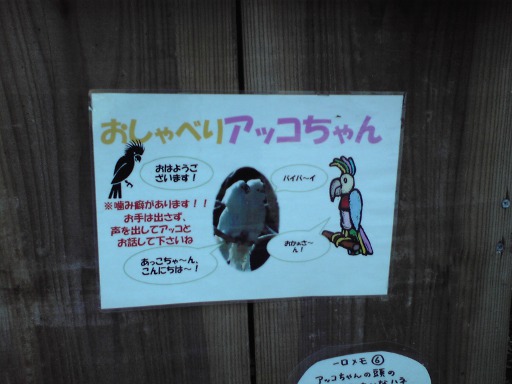 おしゃべりアッコちゃん
おはようご
ざいます!
バイバ〜イ
※噛み癖があります!!
お手は出さず、
声を出してアッコと
お話して下さいね
おかぁさ〜
ん!
あっこちゃ〜ん、
こんにちは〜!
一口メモ⑥
アッコちゃんの頭の